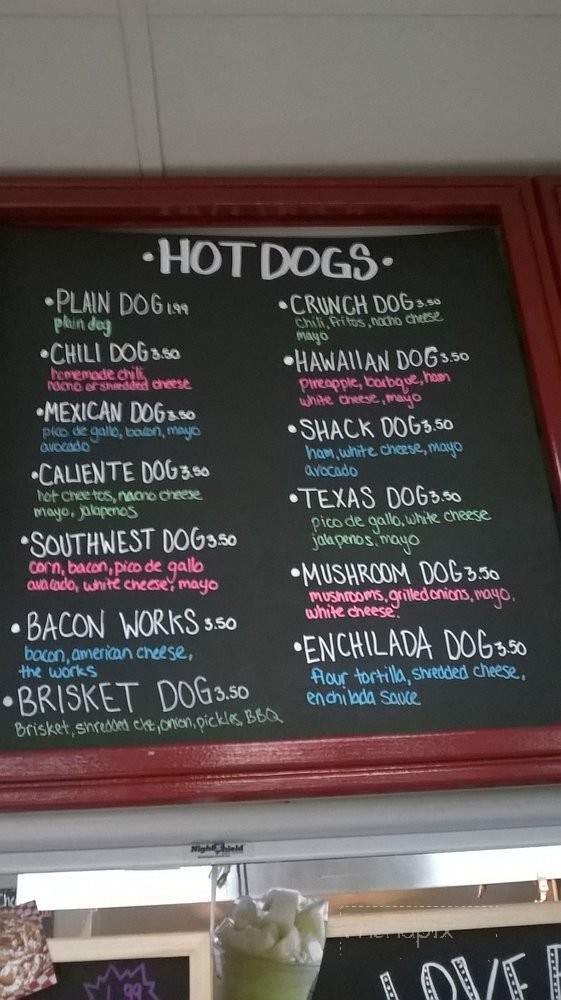 ·HOT DOGS·
·PLAIN DOG 1.99
plain dog
·CHILI DOG 3.50
homemade chili,
nacho or shredded cheese
·MEXICAN DOG 3.50
pico de gallo, bacon, mayo
avocado
·CALIENTE DOG 3.50
hot cheetos, nacho cheese
mayo, jalapenos
·SOUTHWEST DOG 3.50
corn, bacon, pico de gallo
avacado, white cheese, mayo
·BACON WORKS 3.50
bacon, american cheese,
the works
·BRISKET DOG 3.50
Brisket, shredded chz, onion, pickles, BBQ
·CRUNCH DOG 3.50
chili, fritos, nacho cheese
mayo
·HAWAIIAN DOG 3.50
pineapple, barbque, ham
white cheese, mayo
·SHACK DOG 3.50
ham, white cheese, mayo
avocado
·TEXAS DOG 3.50
pico de gallo, white cheese
jalapenos, mayo
·MUSHROOM DOG 3.50
mushrooms, grilled onions, mayo,
white cheese.
·ENCHILADA DOG 3.50
flour tortilla, shredded cheese,
enchilada sauce
NightShield
menupix
1.99
LOVE